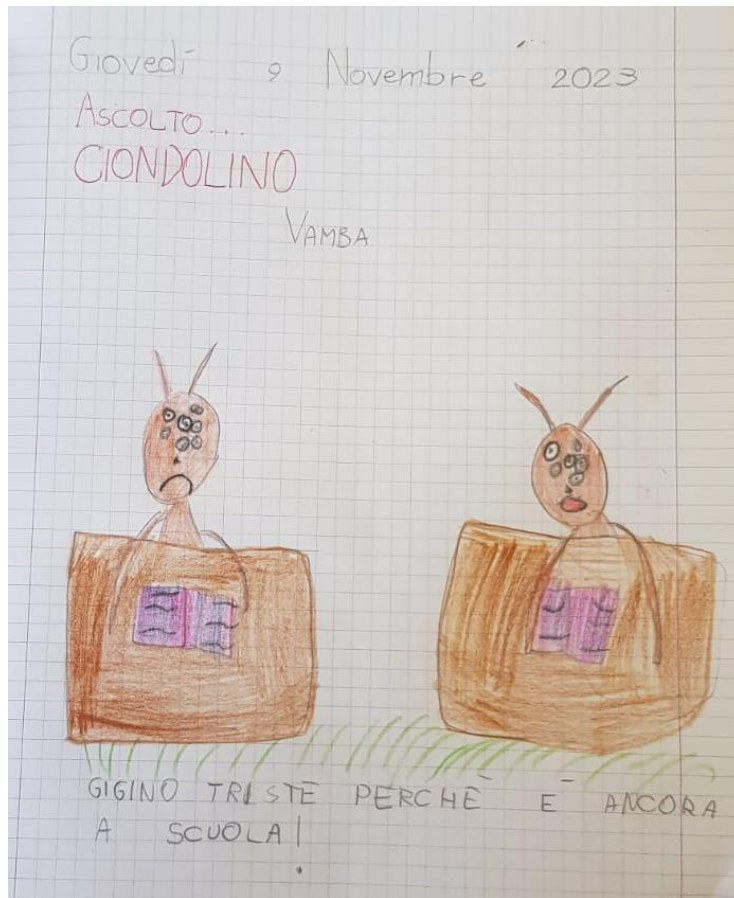 Giovedì 9 Novembre 2023
ASCOLTO...
CIONDOLINO
VAMBA
GIGINO TRISTE PERCHÈ È ANCORA
A SCUOLA!